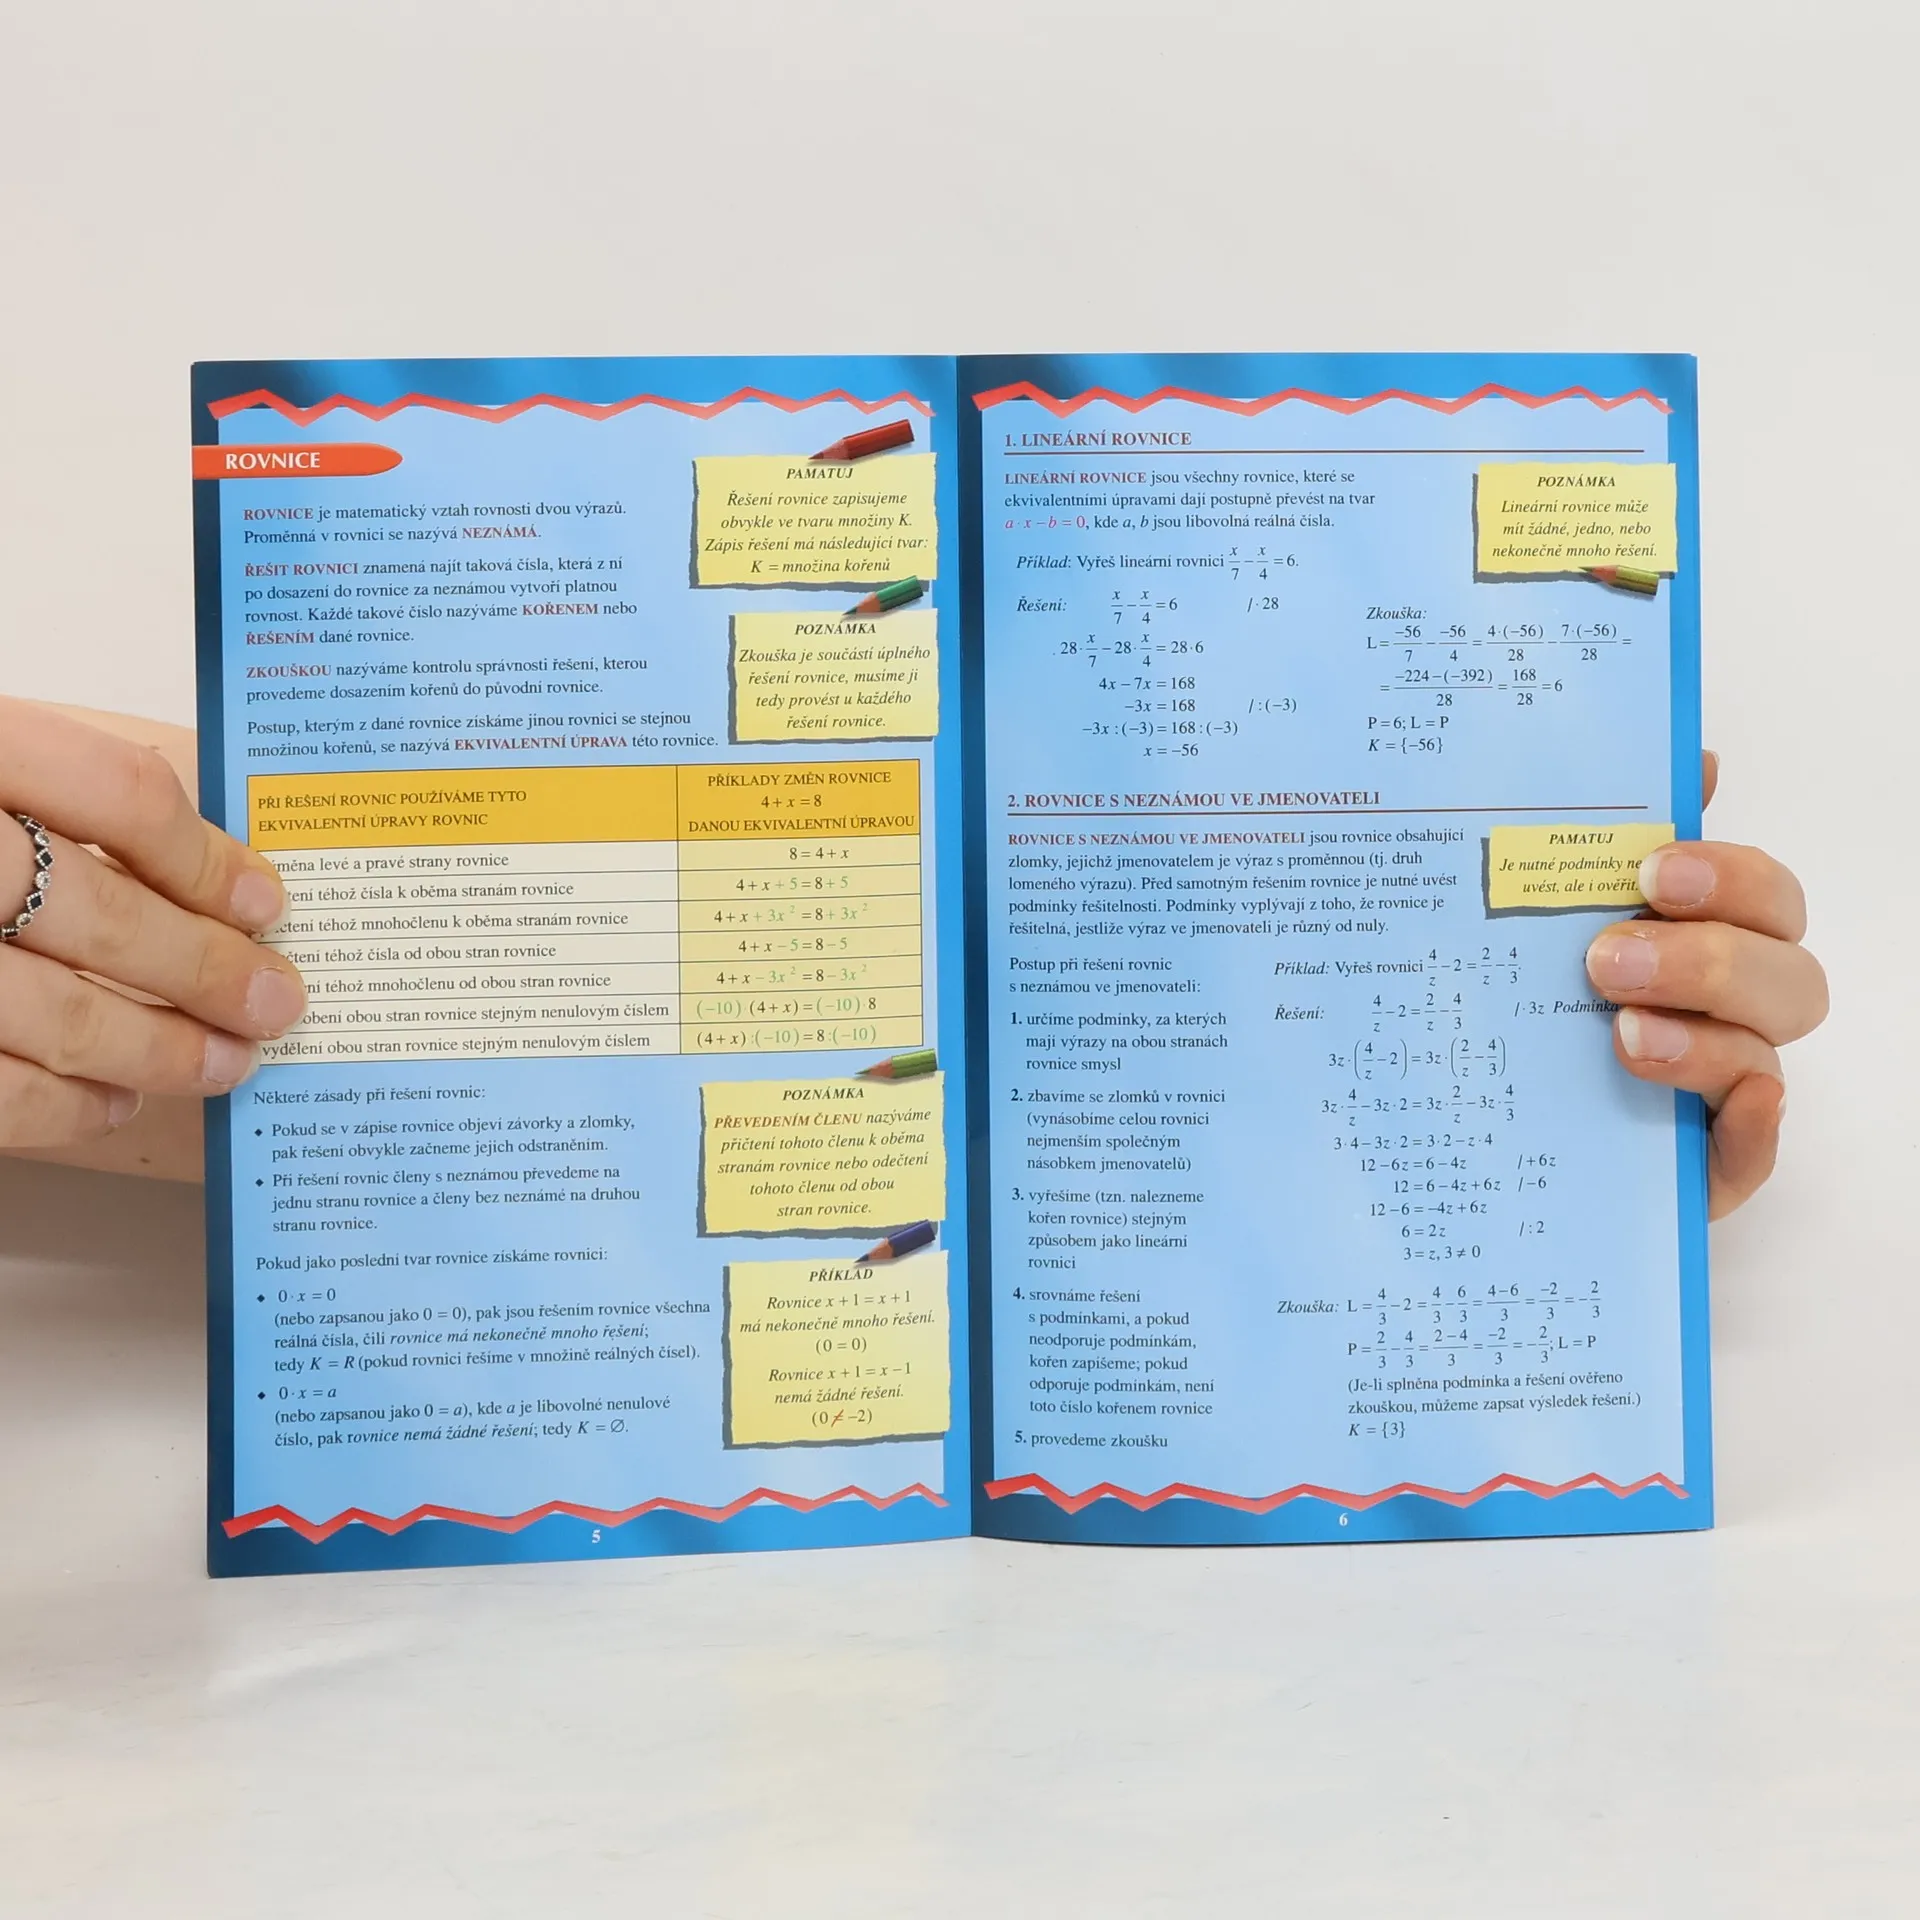 ROVNICE
ROVNICE je matematický vztah rovnosti dvou výrazů.
Proměnná v rovnici se nazývá NEZNÁMÁ.
ŘEŠIT ROVNICI znamená najít taková čísla, která z ní
po dosazení do rovnice za neznámou vytvoří platnou
rovnost. Každé takové číslo nazýváme KOŘENEM nebo
ŘEŠENÍM dané rovnice.
ZKOUŠKOU nazýváme kontrolu správnosti řešení, kterou
provedeme dosazením kořenů do původní rovnice.
Postup, kterým z dané rovnice získáme jinou rovnici se stejnou
množinou kořenů, se nazývá EKVIVALENTNÍ ÚPRAVA této rovnice.
PAMATUJ
Řešení rovnice zapisujeme
obvykle ve tvaru množiny K.
Zápis řešení má následující tvar:
K = množina kořenů
POZNÁMKA
Zkouška je součástí úplného
řešení rovnice, musíme ji
tedy provést u každého
řešení rovnice.
PŘI ŘEŠENÍ ROVNIC POUŽÍVÁME TYTO
EKVIVALENTNÍ ÚPRAVY ROVNIC
PŘÍKLADY ZMĚN ROVNICE
4 + x = 8
DANOU EKVIVALENTNÍ ÚPRAVOU
levé a pravé strany rovnice 8 = 4 + x
téhož čísla k oběma stranám rovnice 4 + x + 5 = 8 + 5
téhož mnohočlenu k oběma stranám rovnice 4 + x + 3x² = 8 + 3x²
téhož čísla od obou stran rovnice 4 + x − 5 = 8 − 5
téhož mnohočlenu od obou stran rovnice 4 + x − 3x² = 8 − 3x²
obou stran rovnice stejným nenulovým číslem (−10)·(4 + x) = (−10)·8
vydělení obou stran rovnice stejným nenulovým číslem (4 + x):(−10) = 8:(−10)
Některé zásady při řešení rovnic:
• Pokud se v zápise rovnice objeví závorky a zlomky,
pak řešení obvykle začneme jejich odstraněním.
• Při řešení rovnic členy s neznámou převedeme na
jednu stranu rovnice a členy bez neznámé na druhou
stranu rovnice.
Pokud jako poslední tvar rovnice získáme rovnici:
• 0·x = 0
(nebo zapsanou jako 0 = 0), pak jsou řešením rovnice všechna
reálná čísla, čili rovnice má nekonečně mnoho řešení;
tedy K = R (pokud rovnici řešíme v množině reálných čísel).
• 0·x = a
(nebo zapsanou jako 0 = a), kde a je libovolné nenulové
číslo, pak rovnice nemá žádné řešení; tedy K = ∅.
POZNÁMKA
PŘEVEDENÍM ČLENU nazýváme
přičtení tohoto členu k oběma
stranám rovnice nebo odečtení
tohoto členu od obou
stran rovnice.
PŘÍKLAD
Rovnice x + 1 = x + 1
má nekonečně mnoho řešení.
(0 = 0)
Rovnice x + 1 = x − 1
nemá žádné řešení.
(0 ≠ −2)
5
1. LINEÁRNÍ ROVNICE
LINEÁRNÍ ROVNICE jsou všechny rovnice, které se
ekvivalentními úpravami dají postupně převést na tvar
a·x − b = 0, kde a, b jsou libovolná reálná čísla.
POZNÁMKA
Lineární rovnice může
mít žádné, jedno, nebo
nekonečně mnoho řešení.
Příklad: Vyřeš lineární rovnici x/7 − x/4 = 6.
Řešení: x/7 − x/4 = 6 /·28
28·x/7 − 28·x/4 = 28·6
4x − 7x = 168
−3x = 168 /:(−3)
−3x:(−3) = 168:(−3)
x = −56
Zkouška:
L = −56/7 − −56/4 = 4·(−56)/28 − 7·(−56)/28 =
= −224−(−392)/28 = 168/28 = 6
P = 6; L = P
K = {−56}
2. ROVNICE S NEZNÁMOU VE JMENOVATELI
ROVNICE S NEZNÁMOU VE JMENOVATELI jsou rovnice obsahující
zlomky, jejichž jmenovatelem je výraz s proměnnou (tj. druh
lomeného výrazu). Před samotným řešením rovnice je nutné uvést
podmínky řešitelnosti. Podmínky vyplývají z toho, že rovnice je
řešitelná, jestliže výraz ve jmenovateli je různý od nuly.
PAMATUJ
Je nutné podmínky
uvést, ale i ověřit.
Postup při řešení rovnic
s neznámou ve jmenovateli:
1. určíme podmínky, za kterých
mají výrazy na obou stranách
rovnice smysl
2. zbavíme se zlomků v rovnici
(vynásobíme celou rovnici
nejmenším společným
násobkem jmenovatelů)
3. vyřešíme (tzn. nalezneme
kořen rovnice) stejným
způsobem jako lineární
rovnici
4. srovnáme řešení
s podmínkami, a pokud
neodporuje podmínkám,
kořen zapíšeme; pokud
odporuje podmínkám, není
toto číslo kořenem rovnice
5. provedeme zkoušku
Příklad: Vyřeš rovnici 4/z − 2 = 2/z − 4/3.
Řešení: 4/z − 2 = 2/z − 4/3 /·3z Podmínka
3z·(4/z − 2) = 3z·(2/z − 4/3)
3z·4/z − 3z·2 = 3z·2/z − 3z·4/3
3·4 − 3z·2 = 3·2 − z·4
12 − 6z = 6 − 4z /+6z
12 = 6 − 4z + 6z /−6
12 − 6 = −4z + 6z
6 = 2z /:2
3 = z, 3 ≠ 0
Zkouška: L = 4/3 − 2 = 4/3 − 6/3 = 4−6/3 = −2/3 = −2/3
P = 2/3 − 4/3 = 2−4/3 = −2/3 = −2/3; L = P
(Je-li splněna podmínka a řešení ověřeno
zkouškou, můžeme zapsat výsledek řešení.)
K = {3}
6